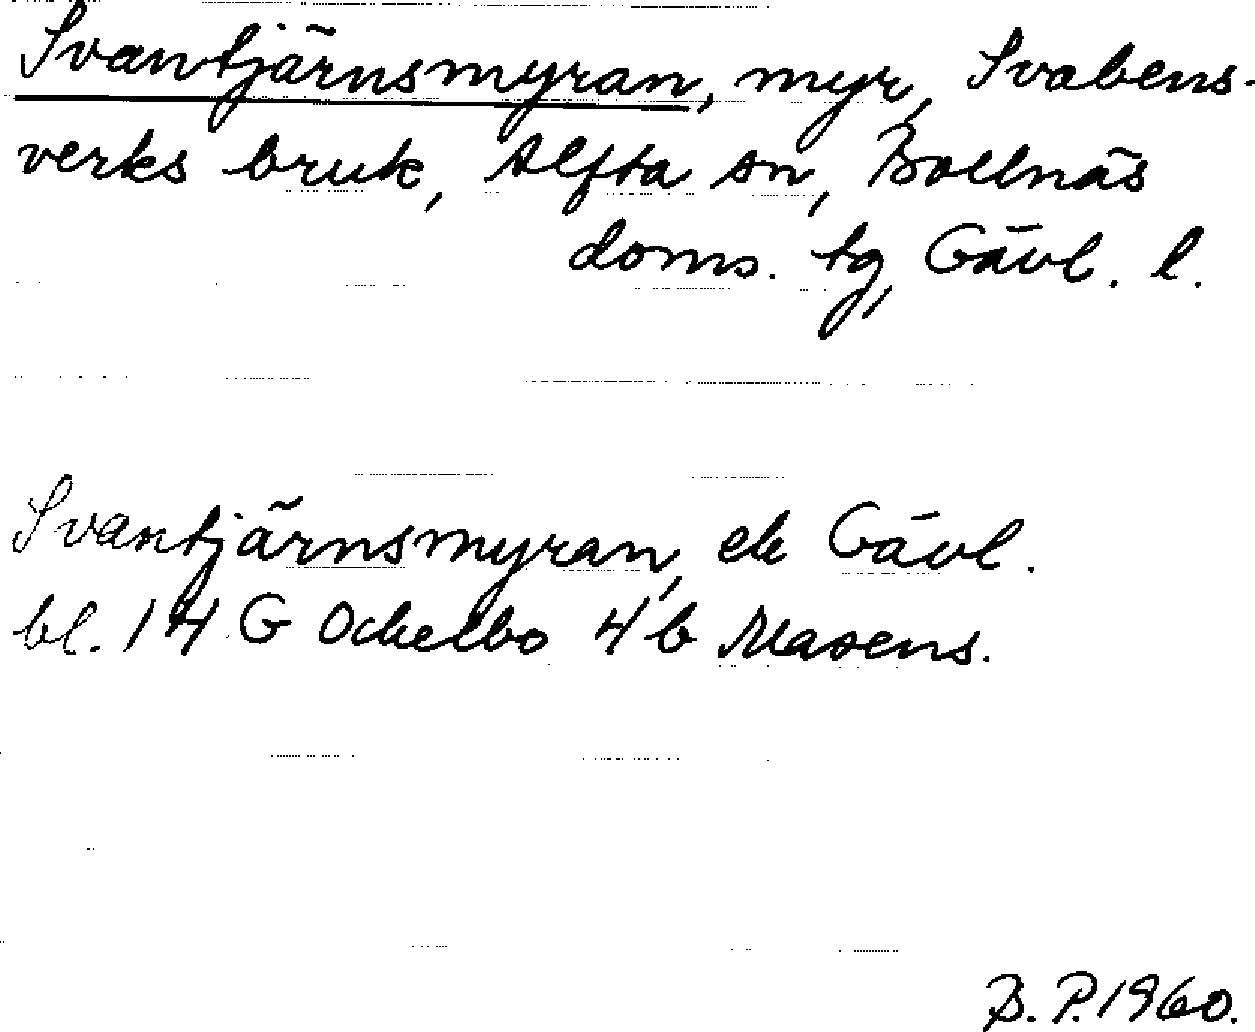 Svantjärnsmyran, myr, Svabens-
verks bruk, Alfta sn, Bollnäs
doms. tg, Gävl. l.
Svantjärnsmyran, ek Gävl.
bl. 14 G Ockelbo 4 b Masens.
B. P. 1960.